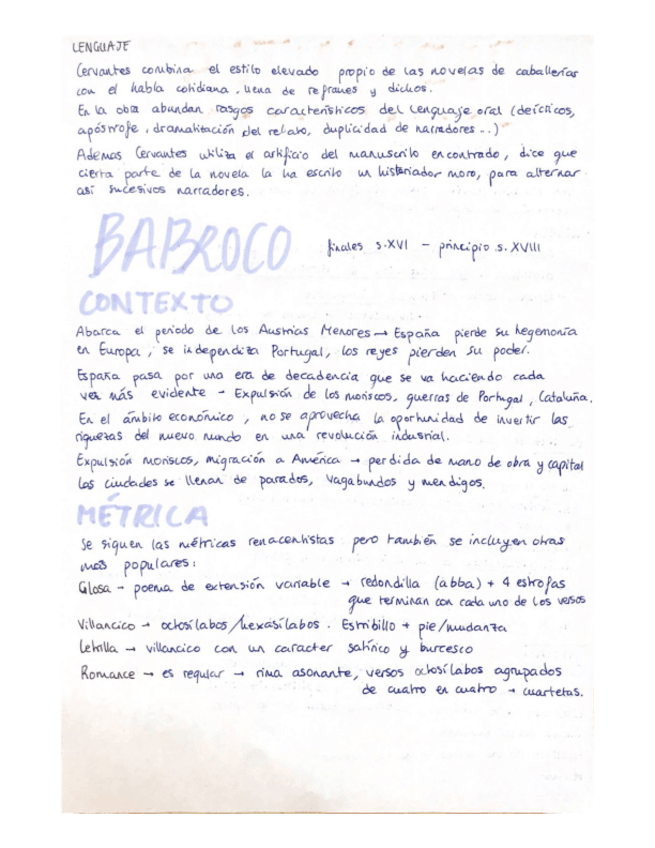 LENGUAJE
Cervantes combina el estilo elevado propio de las novelas de caballerías
con el habla cotidiana, llena de refranes y dichos.
En la obra abundan rasgos característicos del lenguaje oral (deícticos,
apóstrofe, dramatización del relato, duplicidad de narradores...)
Ademas Cervantes utiliza el artificio del manuscrito encontrado, dice que
cierta parte de la novela la ha escrito un historiador moro, para alternar
así sucesivos narradores.
BARROCO finales s.XVI - principio s. XVIII
CONTEXTO
Abarca el periodo de los Austrias Menores → España pierde su hegemonía
en Europa, se independiza Portugal, los reyes pierden su poder.
España pasa por una era de decadencia que se va haciendo cada
vez más evidente - Expulsión de los moriscos, guerras de Portugal, Cataluña.
En el ámbito económico, no se aprovecha la oportunidad de invertir las
riquezas del nuevo mundo en una revolución industrial.
Expulsión moriscos, migración a América → perdida de mano de obra y capital
las ciudades se llenan de parados, vagabundos y mendigos.
MÉTRICA
Se siguen las métricas renacentistas pero también se incluyen otras
más populares:
Glosa - poema de extensión variable → redondilla (abba) + 4 estrofas
que terminan con cada uno de los versos
Villancico → octosílabos/hexasílabos. Estribillo + pie/mudanza
Letrilla → villancico con un caracter satírico y burcesco
Romance → es regular → rima asonante, versos octosílabos agrupados
de cuatro en cuatro → cuartetas.